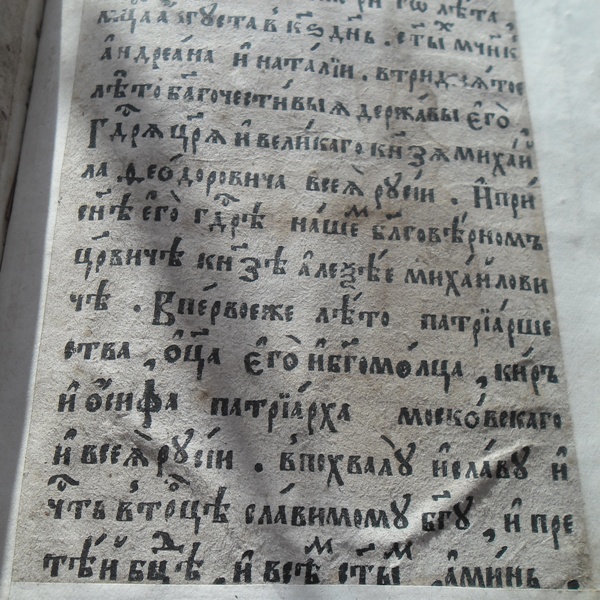 лѣта,
мцⷭ҇а а҆́ѵгꙋста в҃ к҃ѕ дн҃ь. ст҃ы́хъ мч҃нк
а҆ндреа́на и҆ ната́лїи. в тридеся́тое
лѣ́то бл҃гочести́выѧ держа́вы є҆гѡ̀
гдⷭ҇рѧ цр҃ѧ и҆ вели́каго кн҃ѕѧ миха́и
ла ѳео́доровича всеѧ̀ рꙋсі́и. И҆ при́
сн҃ѣ є҆го̀ гдⷭ҇рѣ на́шемъ бл҃говѣ́рномъ
цр҃вичѣ кн҃ѕѣ а҆леѯѣ́е миха́йлови
чѣ. В пе́рвоеже лѣ́то патрїа́рше
ства, ѻ҆ц҃а є҆го̀ и҆ бг҃омо́лца, ки́ръ
и҆ѡ҆́сифа патрїа́рха моско́вскаго
и҆ всеѧ̀ рꙋсі́и. в похвалꙋ̀ и҆ сла́вꙋ и҆
чⷭ҇ть в трⷪ҇цѣ сла́вимомꙋ бг҃ꙋ, и҆ пре
чⷭ҇тѣй бцⷣѣ. и҆ всѣⷨ ст҃ыⷨ, а҆ми́нь.